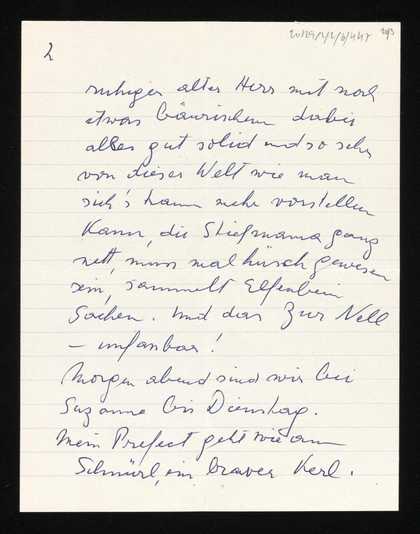 20129/1/2/6/447 2/3
2
ruhiger alter Herr mit noch
etwas bäurischem dabei
alles gut solid und so sehr
von dieser Welt wie man
sich's kaum mehr vorstellen
kann, die Stiefmama ganz
nett, muss mal hübsch gewesen
sein, sammelt Elfenbein
Sachen. Und das zur Nell
– unfassbar!
Morgen abend sind wir bei
Suzanne bis Dienstag.
Mein Prefect geht wie am
Schnürl, ein braver Kerl.